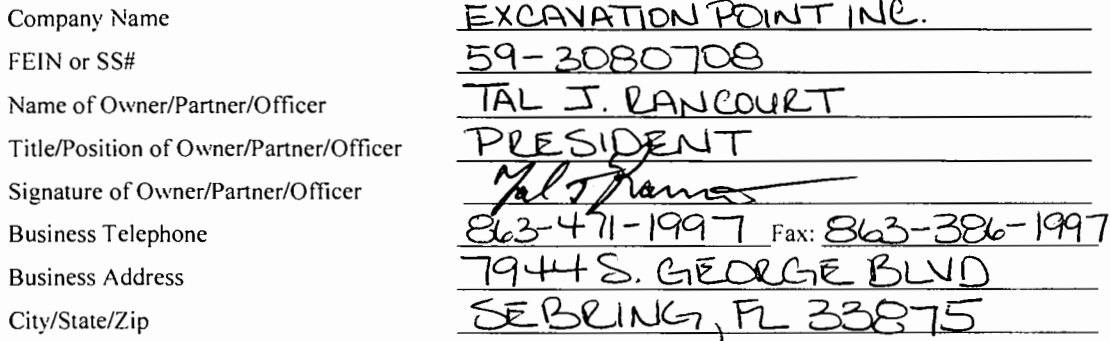 Company Name EXCAVATION POINT INC.
FEIN or SS# 59-3080708
Name of Owner/Partner/Officer TAL J. RANCOURT
Title/Position of Owner/Partner/Officer PRESIDENT
Signature of Owner/Partner/Officer Tal J
Business Telephone 863-471-1997 Fax: 863-386-1997
Business Address 7944 S. GEORGE BLVD
City/State/Zip SEBRING, FL 33875